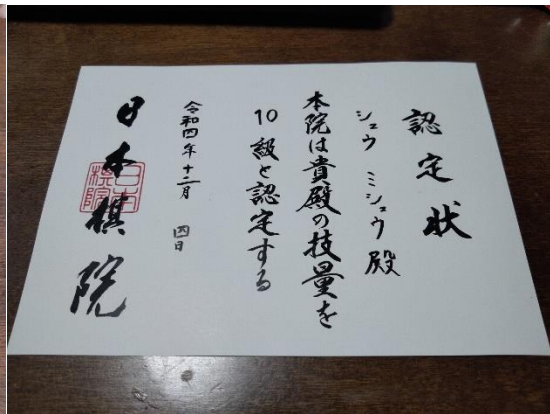 認定状
シュウ ミシュウ 殿
本院は貴殿の技量を
10 級と認定する
令和四年十二月 四日
日本棋院
日本棋院